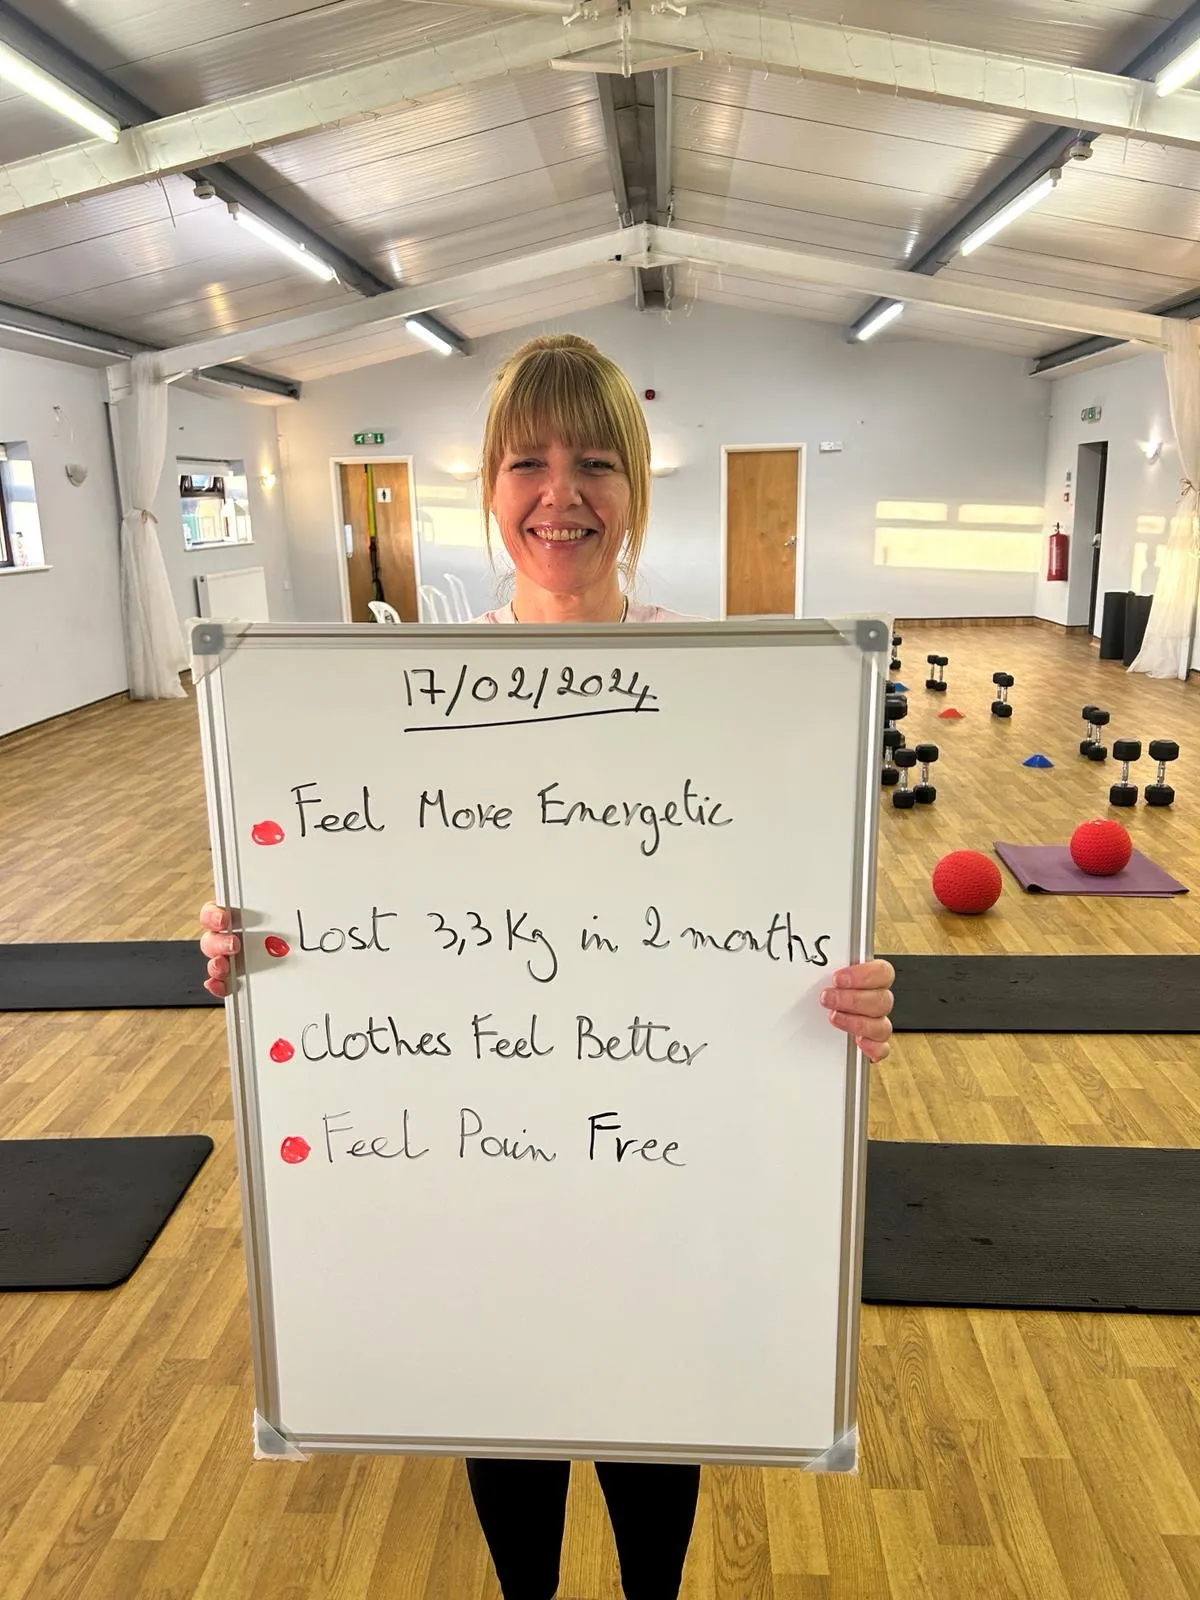 17/02/2024
Feel More Energetic
Lost 3,3 Kg in 2 months
Clothes Feel Better
Feel Pain Free